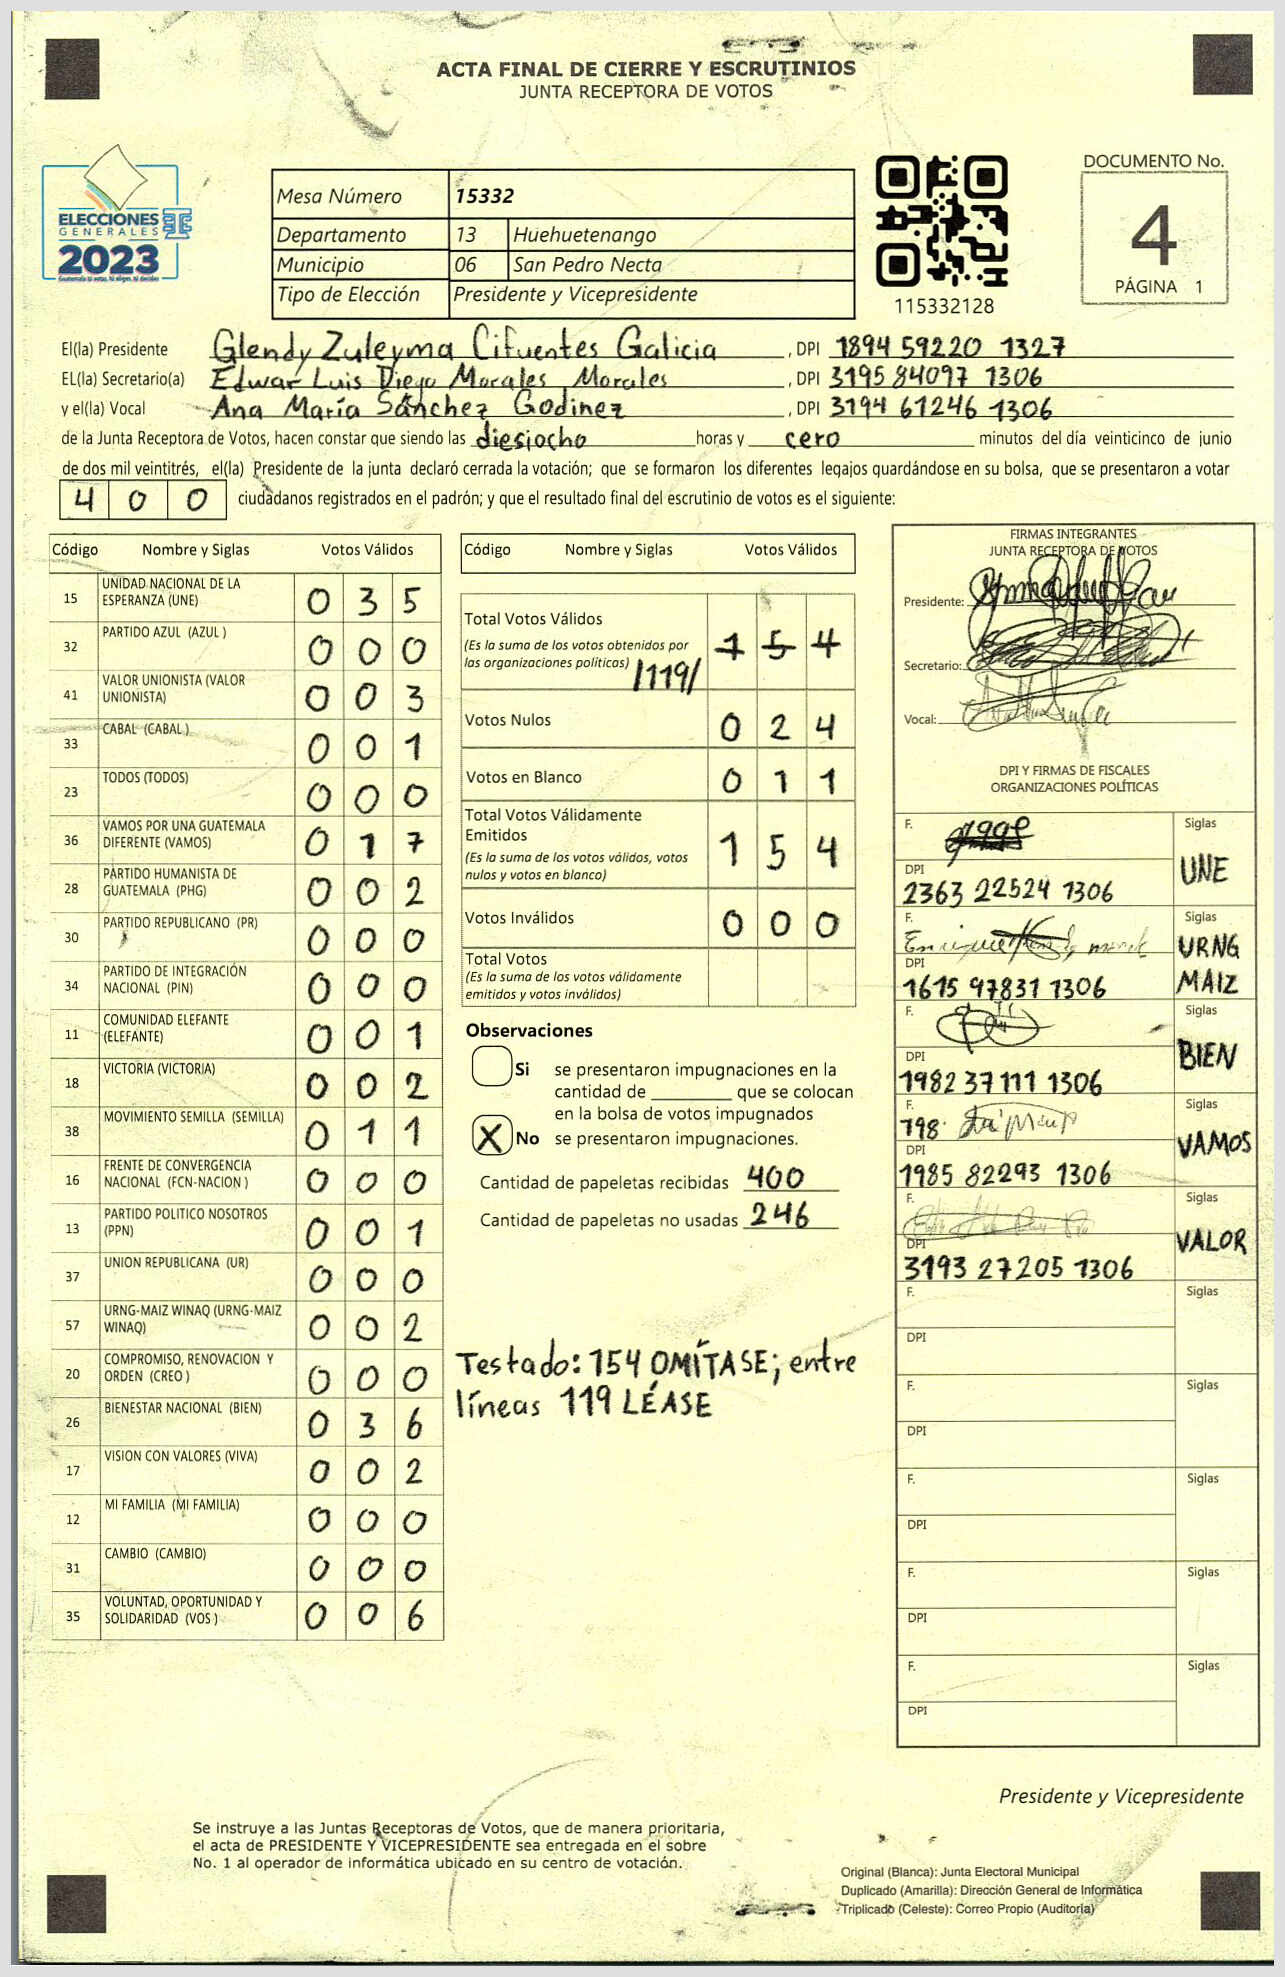 ACTA FINAL DE CIERRE Y ESCRUTINIOS
JUNTA RECEPTORA DE VOTOS
ELECCIONES
GENERALES
2023
Mesa Número 15332
Departamento 13 Huehuetenango
Municipio 06 San Pedro Necta
Tipo de Elección Presidente y Vicepresidente
115332128
DOCUMENTO No.
4
PÁGINA 1
El(la) Presidente Glendy Zuleyma Cifuentes Galicia , DPI 1894 59220 1327
EL(la) Secretario(a) Edwar Luis Diego Morales Morales , DPI 3195 84097 1306
y el(la) Vocal Ana María Sánchez Godinez , DPI 3194 61246 1306
de la Junta Receptora de Votos, hacen constar que siendo las diesiocho horas y cero minutos del día veinticinco de junio
de dos mil veintitrés, el(la) Presidente de la junta declaró cerrada la votación; que se formaron los diferentes legajos guardándose en su bolsa, que se presentaron a votar
4 0 0 ciudadanos registrados en el padrón; y que el resultado final del escrutinio de votos es el siguiente:
Código Nombre y Siglas Votos Válidos
15 UNIDAD NACIONAL DE LA
ESPERANZA (UNE) 0 3 5
32 PARTIDO AZUL (AZUL ) 0 0 0
41 VALOR UNIONISTA (VALOR
UNIONISTA) 0 0 3
33 CABAL (CABAL ) 0 0 1
23 TODOS (TODOS) 0 0 0
36 VAMOS POR UNA GUATEMALA
DIFERENTE (VAMOS) 0 1 7
28 PARTIDO HUMANISTA DE
GUATEMALA (PHG) 0 0 2
30 PARTIDO REPUBLICANO (PR) 0 0 0
34 PARTIDO DE INTEGRACIÓN
NACIONAL (PIN) 0 0 0
11 COMUNIDAD ELEFANTE
(ELEFANTE) 0 0 1
18 VICTORIA (VICTORIA) 0 0 2
38 MOVIMIENTO SEMILLA (SEMILLA) 0 1 1
16 FRENTE DE CONVERGENCIA
NACIONAL (FCN-NACION ) 0 0 0
13 PARTIDO POLITICO NOSOTROS
(PPN) 0 0 1
37 UNION REPUBLICANA (UR) 0 0 0
57 URNG-MAIZ WINAQ (URNG-MAIZ
WINAQ) 0 0 2
20 COMPROMISO, RENOVACION Y
ORDEN (CREO ) 0 0 0
26 BIENESTAR NACIONAL (BIEN) 0 3 6
17 VISION CON VALORES (VIVA) 0 0 2
12 MI FAMILIA (MI FAMILIA) 0 0 0
31 CAMBIO (CAMBIO) 0 0 0
35 VOLUNTAD, OPORTUNIDAD Y
SOLIDARIDAD (VOS ) 0 0 6
Código Nombre y Siglas Votos Válidos
Total Votos Válidos
(Es la suma de los votos obtenidos por
las organizaciones políticas) 1 5 4
/119/
Votos Nulos 0 2 4
Votos en Blanco 0 1 1
Total Votos Válidamente
Emitidos
(Es la suma de los votos válidos, votos
nulos y votos en blanco) 1 5 4
Votos Inválidos 0 0 0
Total Votos
(Es la suma de los votos válidamente
emitidos y votos inválidos)
Observaciones
Si se presentaron impugnaciones en la
cantidad de ________ que se colocan
en la bolsa de votos impugnados
X No se presentaron impugnaciones.
Cantidad de papeletas recibidas 400
Cantidad de papeletas no usadas 246
Testado: 154 OMÍTASE; entre
líneas 119 LÉASE
FIRMAS INTEGRANTES
JUNTA RECEPTORA DE VOTOS
Presidente:
Secretario:
Vocal:
DPI Y FIRMAS DE FISCALES
ORGANIZACIONES POLÍTICAS
F. Siglas
DPI UNE
2363 22524 1306
F. Enrique Siglas
DPI URNG
1615 97831 1306 MAIZ
F. Siglas
DPI BIEN
1982 37111 1306
F. Siglas
798
DPI VAMOS
1985 82293 1306
F. Siglas
DPI VALOR
3193 27205 1306
F. Siglas
DPI
F. Siglas
DPI
F. Siglas
DPI
F. Siglas
DPI
F. Siglas
DPI
Presidente y Vicepresidente
Se instruye a las Juntas Receptoras de Votos, que de manera prioritaria,
el acta de PRESIDENTE Y VICEPRESIDENTE sea entregada en el sobre
No. 1 al operador de informática ubicado en su centro de votación.
Original (Blanca): Junta Electoral Municipal
Duplicado (Amarilla): Dirección General de Informática
Triplicado (Celeste): Correo Propio (Auditoria)